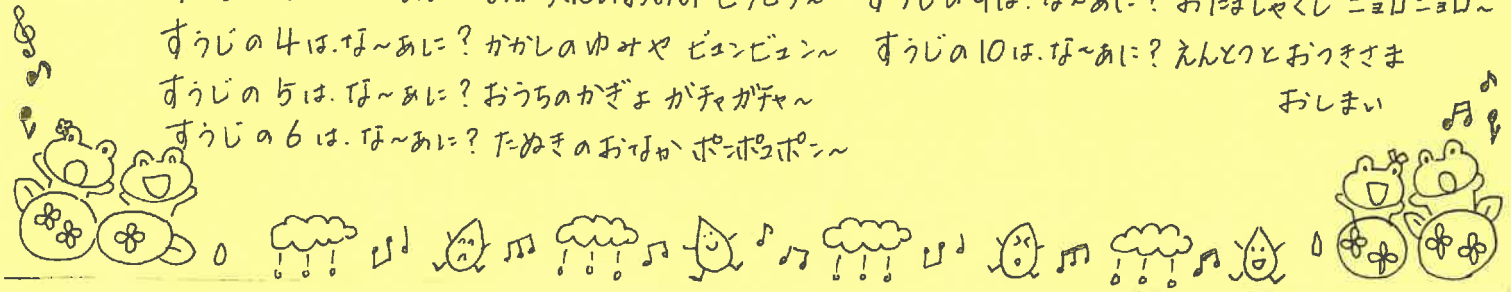 すうじの4は.な～あに？かかしのゆみや ビュンビュン～
すうじの5は.な～あに？おうちのかぎよ ガチャガチャ～
すうじの6は.な～あに？たぬきのおなか ポンポコポン～
すうじの9は.な～あに？おたまじゃくし ニョロニョロ～
すうじの10は.な～あに？えんとつとおつきさま
おしまい